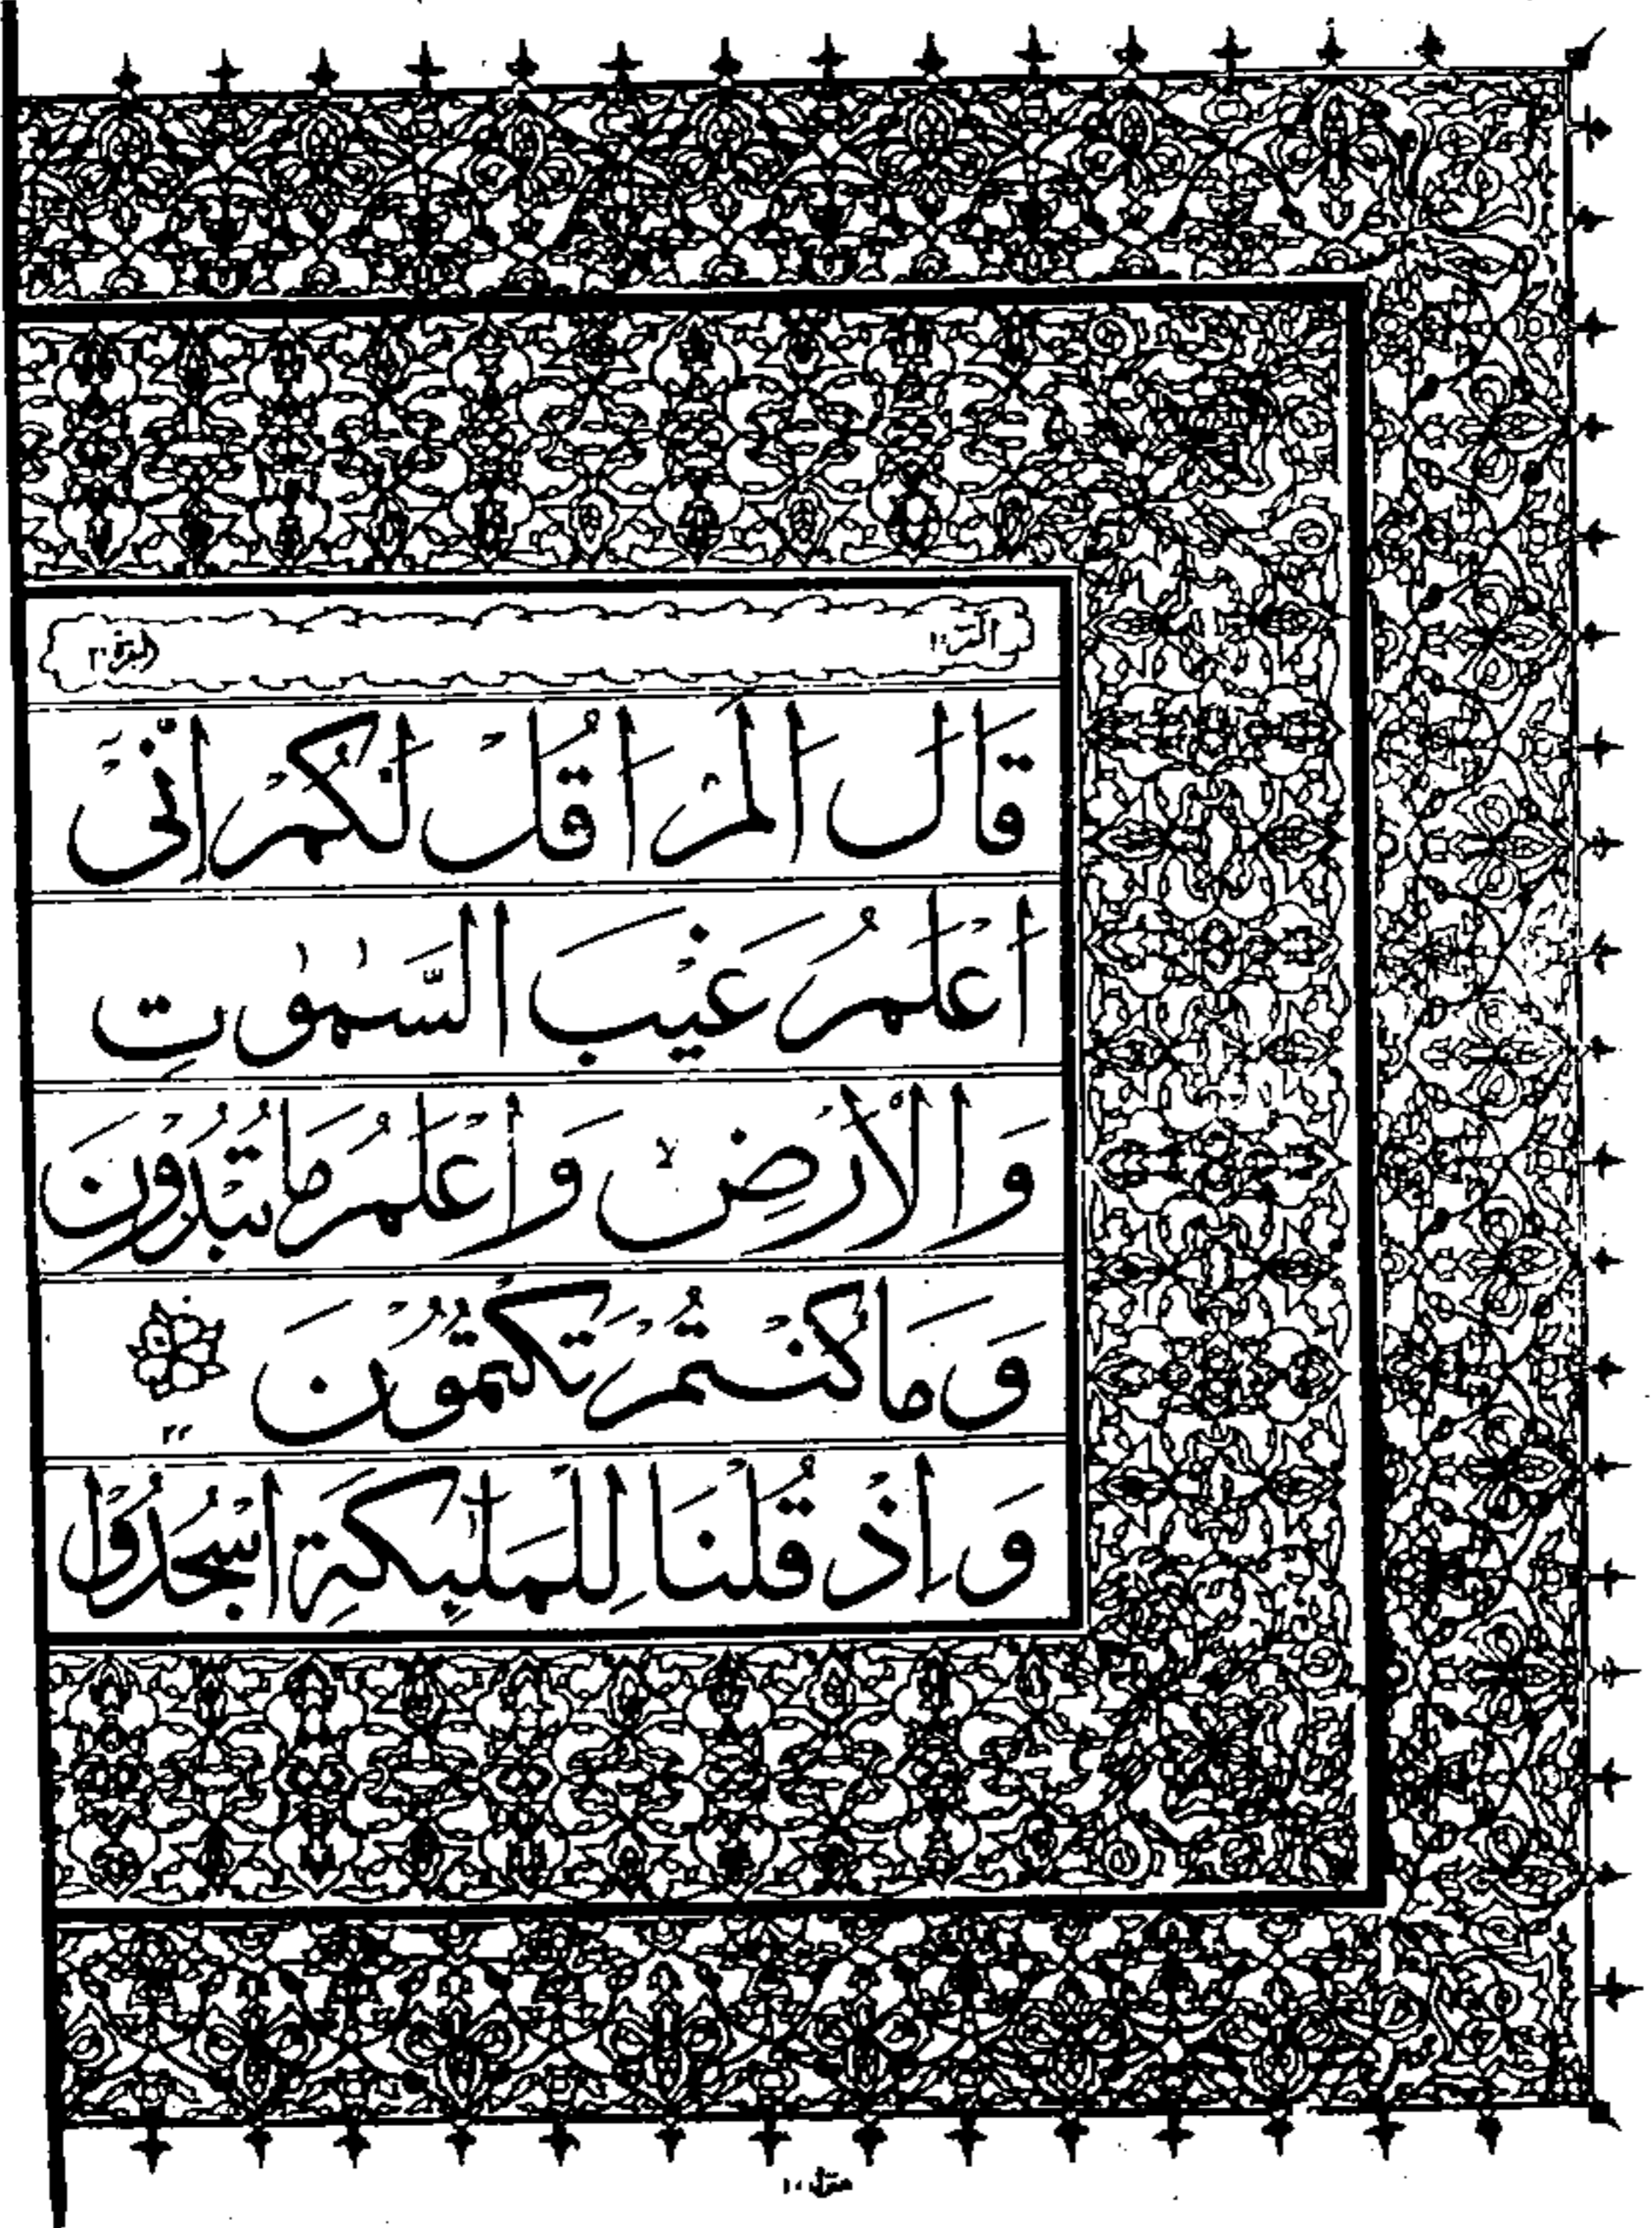 الٓمّٓ ١ البقرة ٢
قَالَ اَلَمْ اَقُلْ لَّكُمْ اِنِّیْۤ
اَعْلَمُ غَیْبَ السَّمٰوٰتِ
وَالْاَرْضِ ۙ وَاَعْلَمُ مَا تُبْدُوْنَ
وَمَا كُنْتُمْ تَكْتُمُوْنَ
٣٣
وَاِذْ قُلْنَا لِلْمَلٰٓىِٕكَةِ اسْجُدُوْا
منزل ١